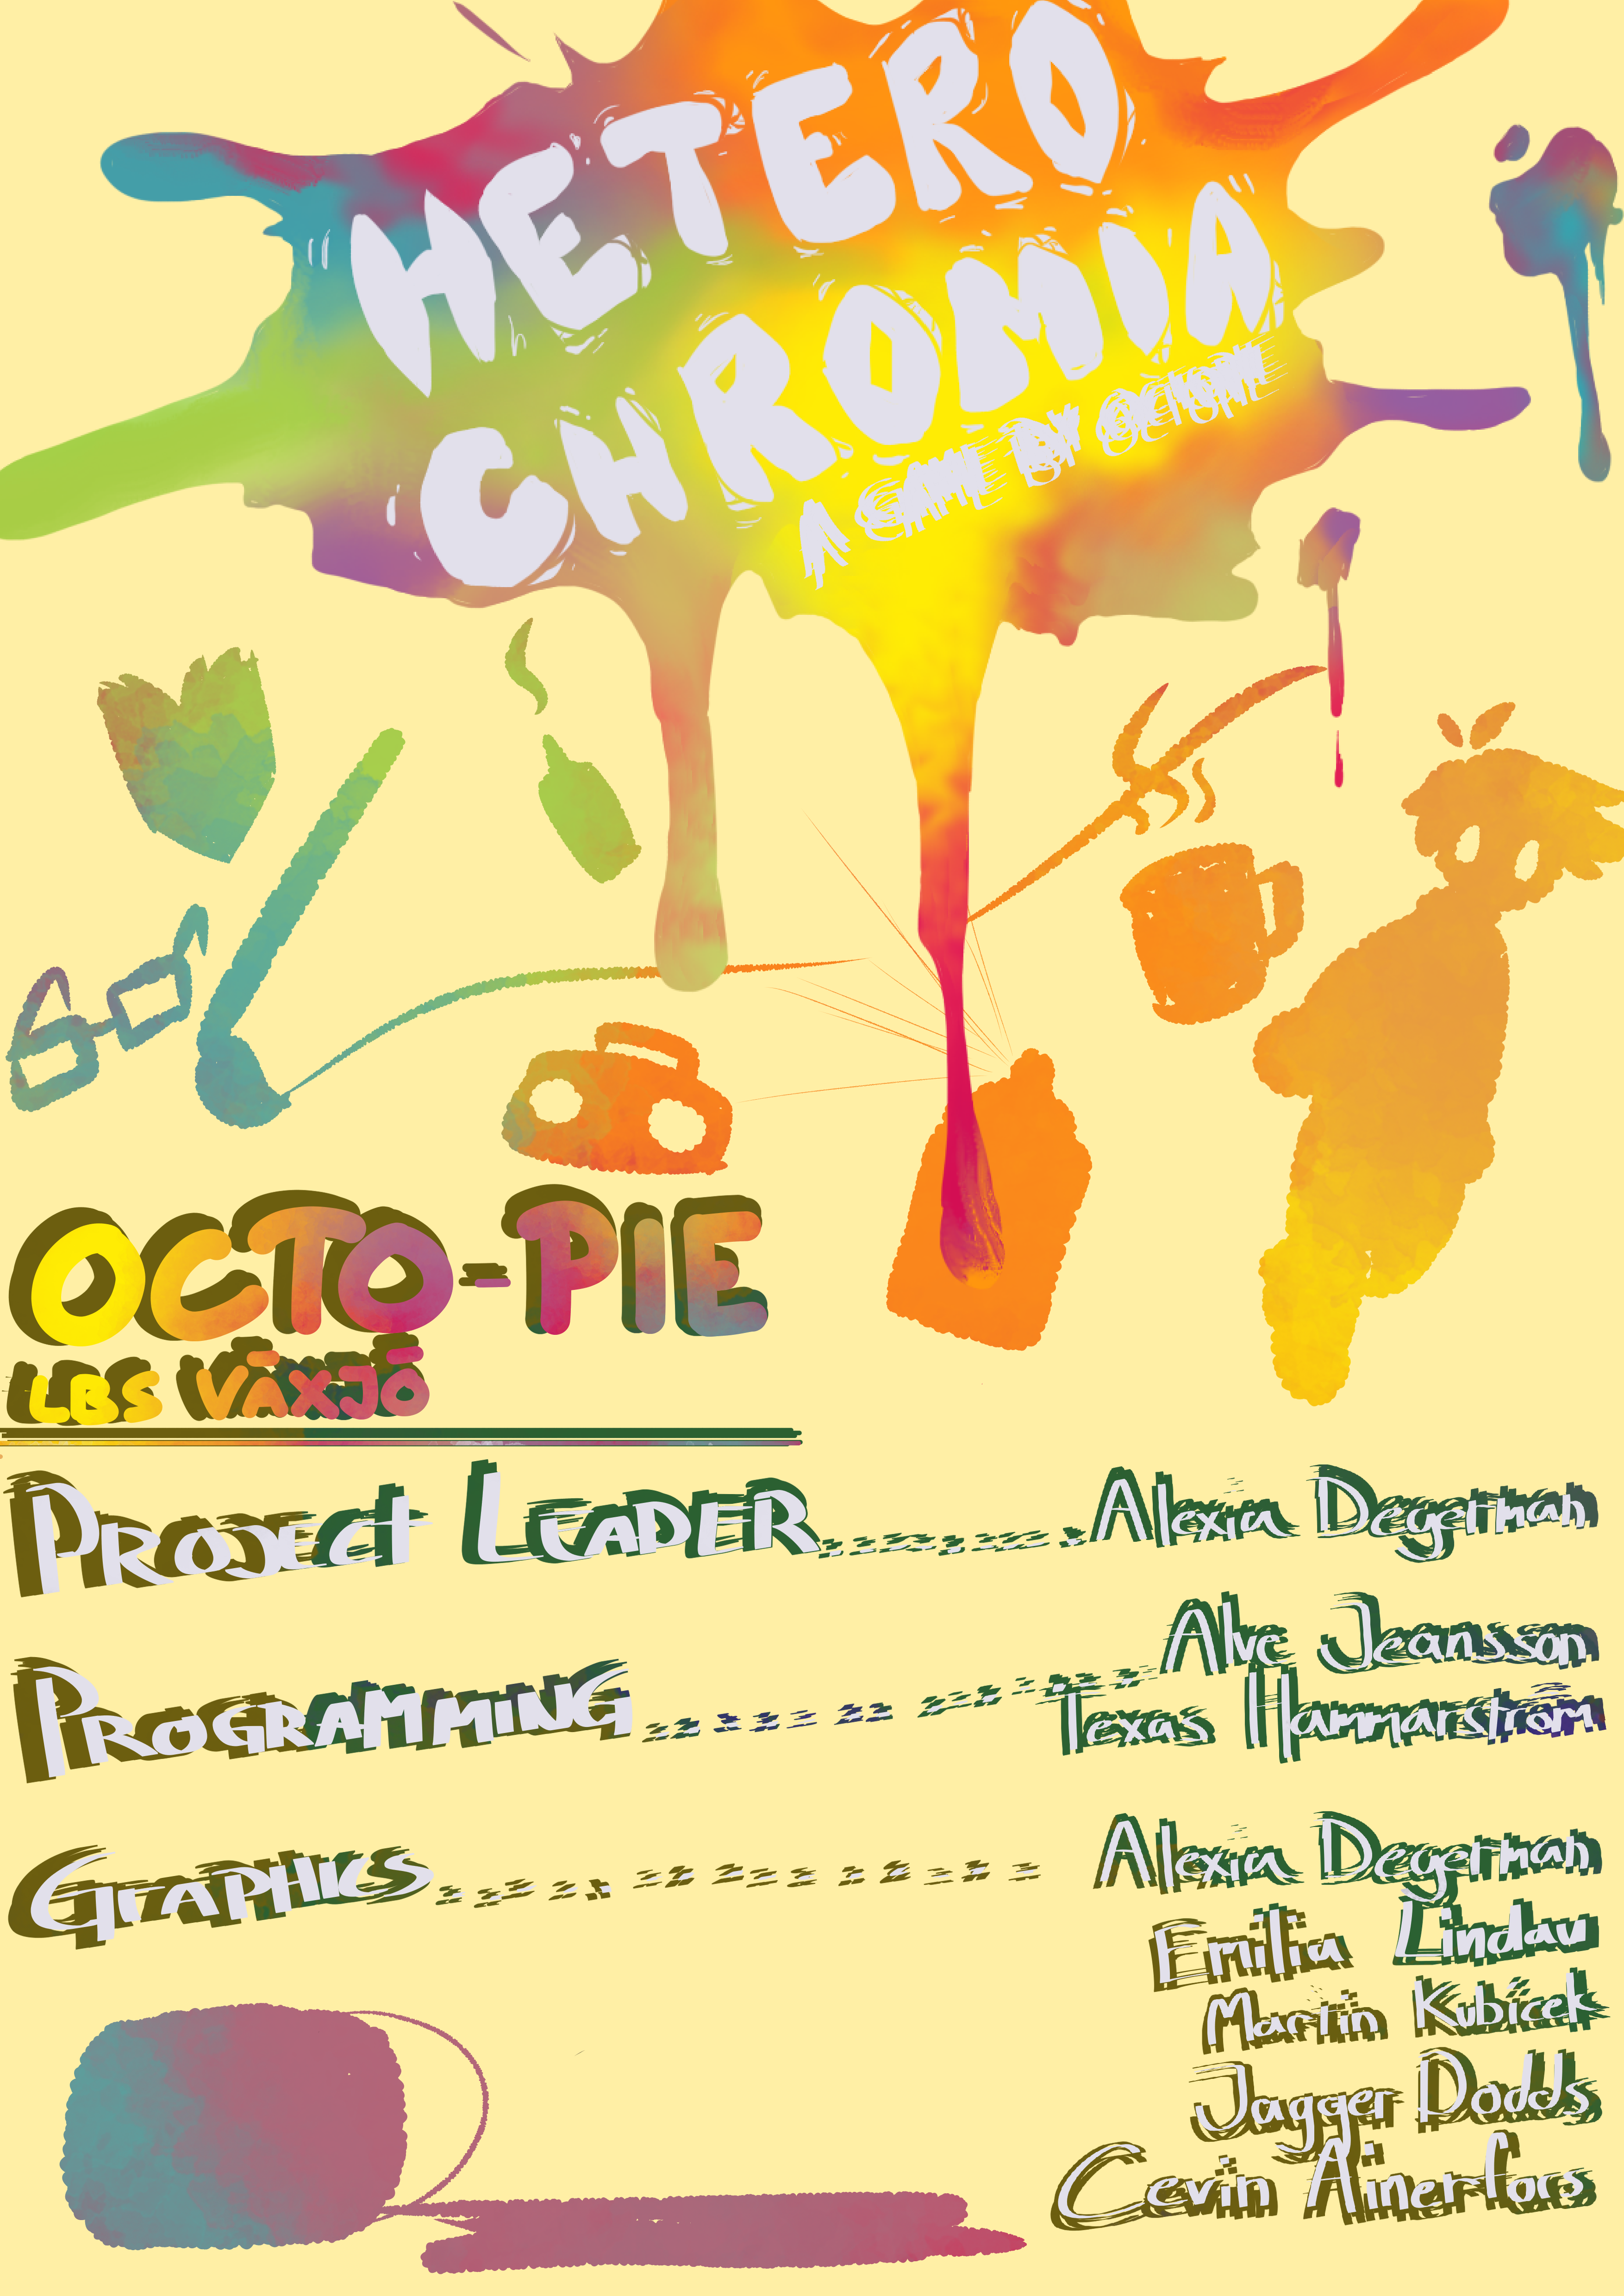 HETERO
CHROMIA
A GAME BY OCTOPIE
OCTO-PIE
LBS VÄXJÖ
PROJECT LEADER Alexia Degerman
Alve Jeansson
PROGRAMMING
Texas Hammarström
GRAPHICS Alexia Degerman
Emilia Lindau
Martin Kubicek
Jagger Dodds
Cevin Ainerfors